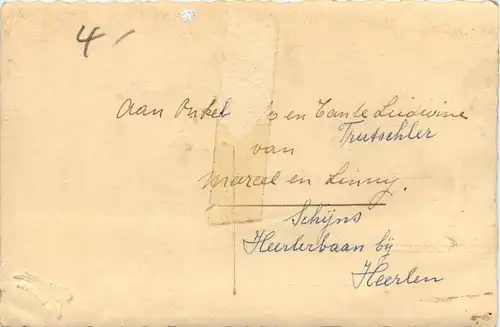 4 -
Aan Onkel en Tante Ludwine
Trutschler
van
Marcel en Linny.
Schijns
Heerlerbaan bij
Heerlen